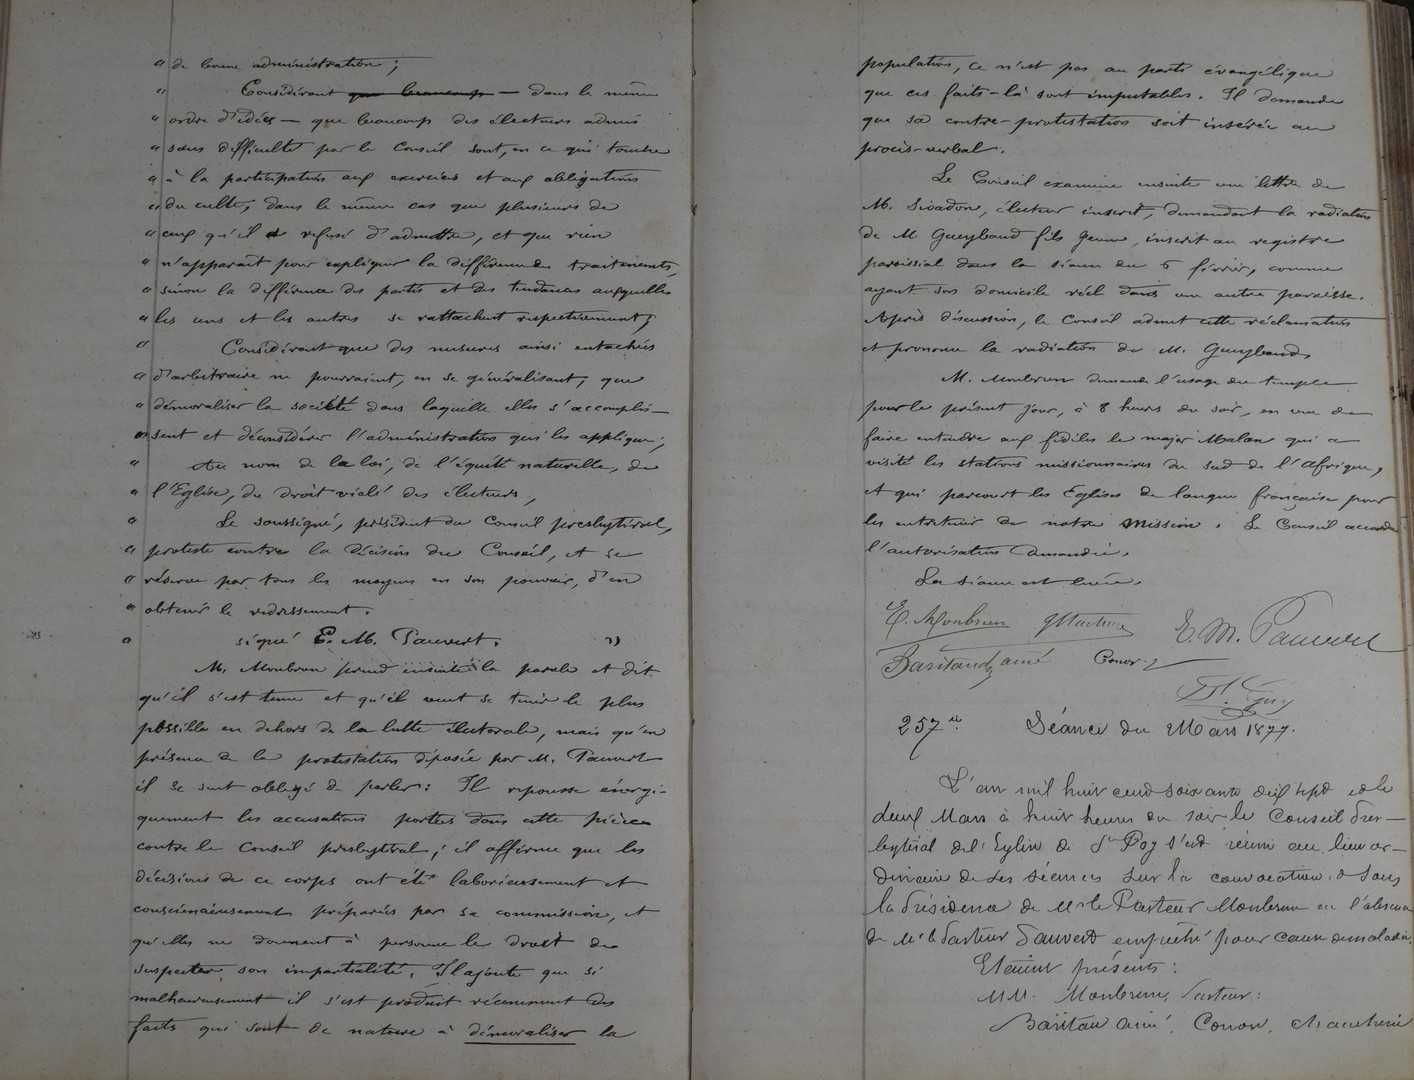 " de bonne administration ;
" Considérant que beaucoup — dans le même
" ordre d'idées — que beaucoup des électeurs admis
" sans difficulté par le Conseil sont, en ce qui touche
" à la participation aux exercices et aux obligations
" du culte, dans le même cas que plusieurs de
" ceux qu'il a refusé d'admettre, et que rien
" n'apparait pour expliquer la différence de traitements,
" sinon la différence des partis et des tendances auxquelles
" les uns et les autres se rattachent respectivement ;
" Considérant que des mesures ainsi entachées
" d'arbitraire ne pourraient, en se généralisant, que
" démoraliser la société dans laquelle elles s'accomplis-
" sent et déconsidérer l'administration qui les applique ;
" Au nom de la loi, de l'équité naturelle, de
" l'Eglise, du droit violé des électeurs,
" Le soussigné, président du Conseil presbytéral,
" proteste contre la décision du Conseil, et se
" réserve par tous les moyens en son pouvoir, d'en
" obtenir le redressement.
" signé E. M. Pauvert. "
M. Monbrun prend ensuite la parole et dit
qu'il s'est tenu et qu'il veut se tenir le plus
possible en dehors de la lutte électorale, mais qu'en
présence de la protestation déposée par M. Pauvert
il se sent obligé de parler : Il repousse énergi-
quement les accusations portées dans cette pièce
contre le Conseil presbytéral ; il affirme que les
décisions de ce corps ont été laborieusement et
consciencieusement préparées par sa commission, et
qu'elles ne donnent à personne le droit de
suspecter son impartialité. Il ajoute que si
malheureusement il s'est produit récemment des
faits qui sont de nature à démoraliser la
population, ce n'est pas au parti évangélique
que ces faits-là sont imputables. Il demande
que sa contre-protestation soit insérée au
procès-verbal.
Le Conseil examine ensuite une lettre de
M. Sivadon, électeur inscrit, demandant la radiation
de M. Gueybaud fils jeune, inscrit au registre
paroissial dans la séance du 6 février, comme
ayant son domicile réel dans une autre paroisse.
Après discussion, le Conseil admet cette réclamation
et prononce la radiation de M. Gueybaud.
M. Monbrun demande l'usage du temple
pour le présent jour, à 8 heures du soir, en vue de
faire entendre aux fidèles le major Malan qui a
visité les stations missionnaires du sud de l'Afrique,
et qui parcourt les Eglises de langue française pour
les entretenir de notre mission. Le Conseil accorde
l'autorisation demandée.
La séance est levée.
E. Monbrun E. M. Pauvert
Baritaud aîné Conor
257e. Séance du Mars 1877.
L'an mil huit cent soixante dix sept et le
deux Mars à huit heures du soir le Conseil Pres-
bytéral de l'Eglise de Ste Foy s'est réuni au lieu or-
dinaire de ses séances sur la convocation & sous
la Présidence de Mr le Pasteur Monbrun en l'absence
de Mr le Pasteur Pauvert empêché pour cause de maladie.
Etaient présents :
MM. Monbrun, Pasteur :
Baritau aîné, Conor,